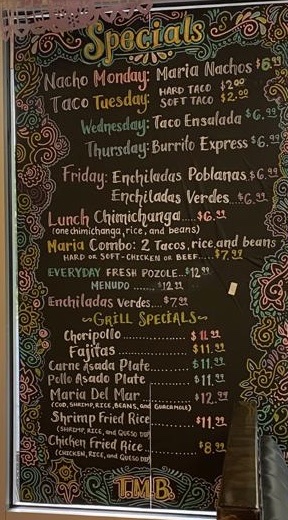 Specials
Nacho Monday: Maria Nachos $6.99
Taco Tuesday: HARD TACO $2.00
SOFT TACO $2.00
Wednesday: Taco Ensalada $6.99
Thursday: Burrito Express $6.99
Friday: Enchiladas Poblanas $6.99
Enchiladas Verdes...$6.99
Lunch Chimichanga....$6.99
(one chimichanga, rice, and beans)
Maria Combo: 2 Tacos, rice, and beans
HARD OR SOFT-CHICKEN OR BEEF.....$7.99
EVERYDAY FRESH POZOLE..$12.99
MENUDO ......$12.99
Enchiladas Verdes...$7.99
~GRILL SPECIALS~
Choripollo.................$11.99
Fajitas.....................$11.99
Carne Asada Plate..........$11.99
Pollo Asado Plate ..........$11.99
Maria Del Mar................$12.99
(COD, SHRIMP, RICE, BEANS, and GUACAMOLE)
Shrimp Fried Rice..........$11.99
(SHRIMP, RICE, and QUESO DIP)
Chicken Fried Rice..........$8.99
(CHICKEN, RICE, and QUESO DIP)
T.M.B.